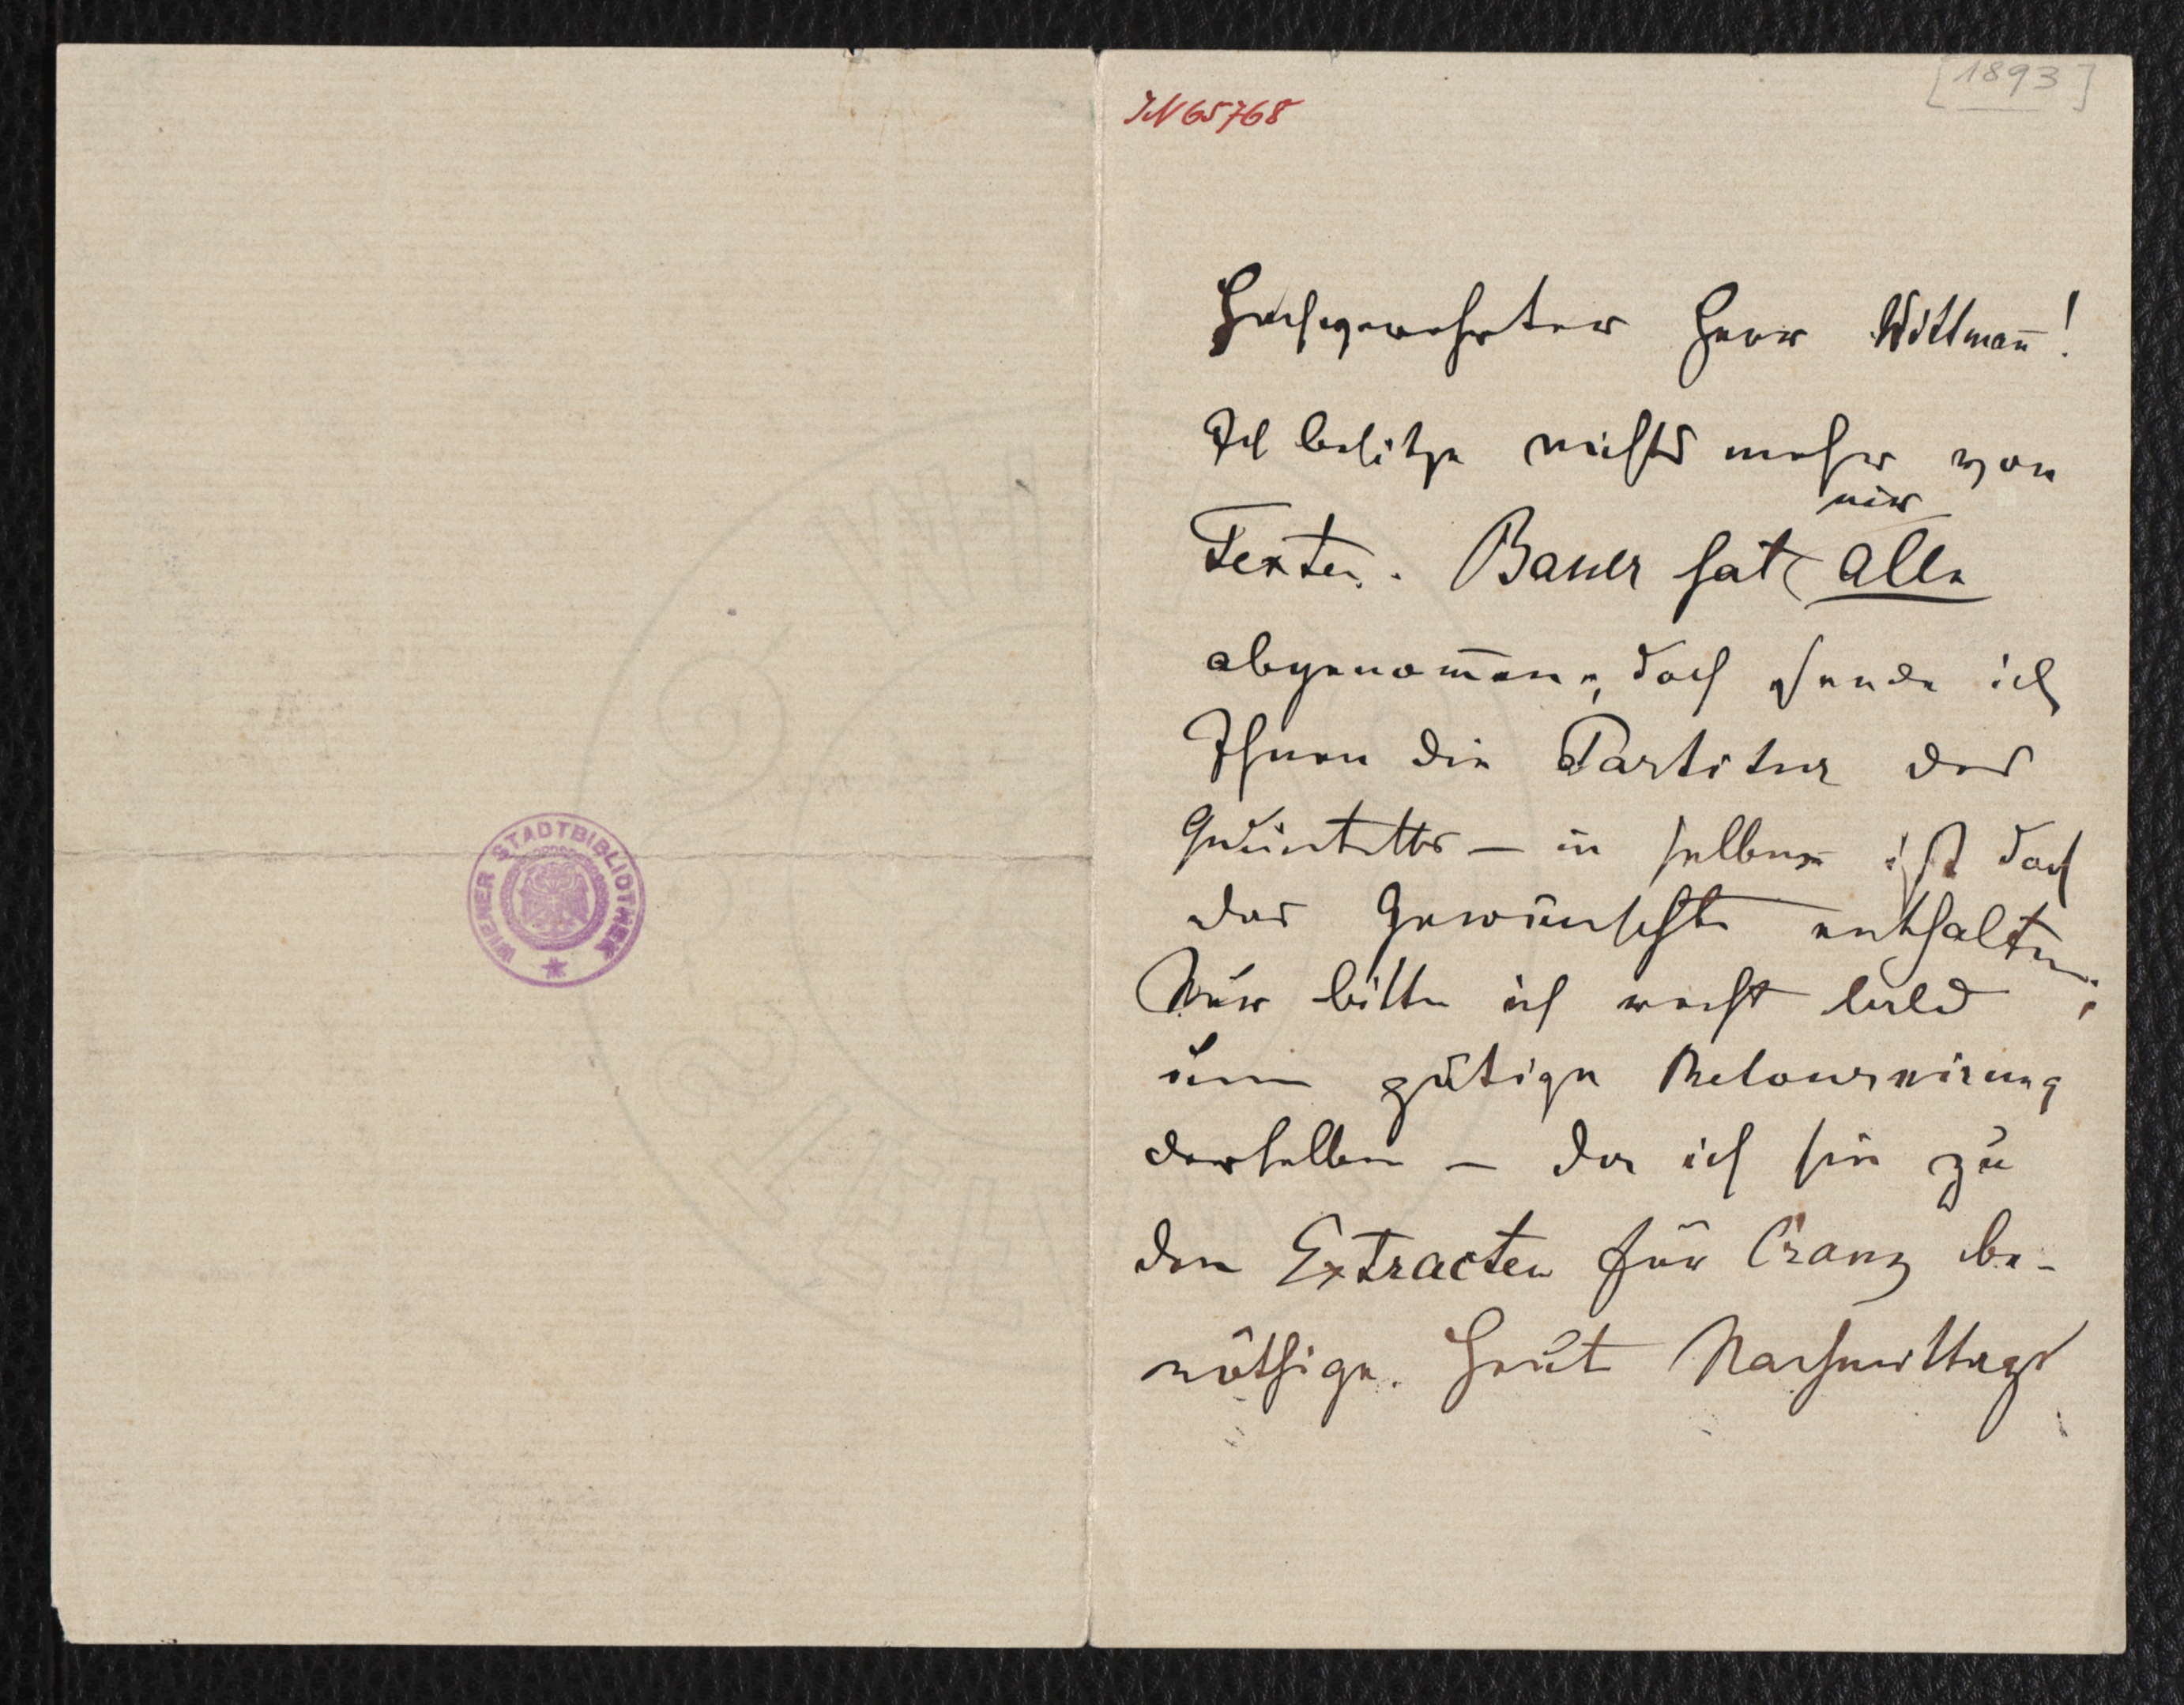 WIENER STADTBIBLIOTHEK
[1893]
JN 65768
Hochgeehrter Herr Wittmañ!
Ich besitze nichts mehr von
mir
Texten. Bauer hat alle
abgenom̄en, doch sende ich
Ihnen die Partitur des
Quintetts – in selber ist doch
das Gewünschte enthalten;
Nur bitte ich recht bald
um gütige Retournirung
derselben – da ich sie zu
den Extracten für Cranz be-
nöthige. Heut Nachmittags